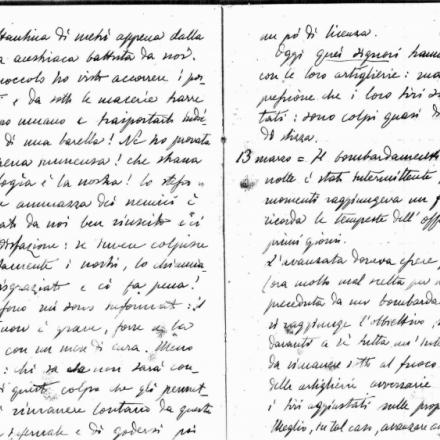 tantina di metri appena dalla
a austriaca battuta da noi.
noccolo ho visto accorrere i po
e da sotto le macerie trarre
po umano e trasportarlo indie
di una barella! Ne ho provata
pena immensa! che strana
logia è la nostra! lo
e ammazza dei nemici è
ato da noi ben riuscito e ci
disfazione: se invece colpisce
i nostri, lo chiamia
disgraziato e ci fa pena!
fono mi sono informato: il
è grave, forse se la
con un mese di cura. Meno
: chi sa se non sarà con
di questo colpo che gli permet
i rimanere lontano da queste
infernale e di godersi poi
un pò di licenza.
Oggi quei signori hanno
con le loro artiglierie: ma
che i loro tiri s
tati: sono colpi quasi d
di stizza.
13 marzo = Il bombardamento
notte è stato intermittente,
momenti raggiungeva un
ricorda le tempeste dell'off
primi giorni.
L'avanzata doveva essere,
(ora molto mal scelta per
preceduta da un bombarda
si raggiunge l'obbiettivo,
davanti a sè tutta un'int
da rimanere sotto al fuoco
delle artiglierie avversarie
i tiri aggiustati sulle prop
Meglio, in tal caso, avanzare